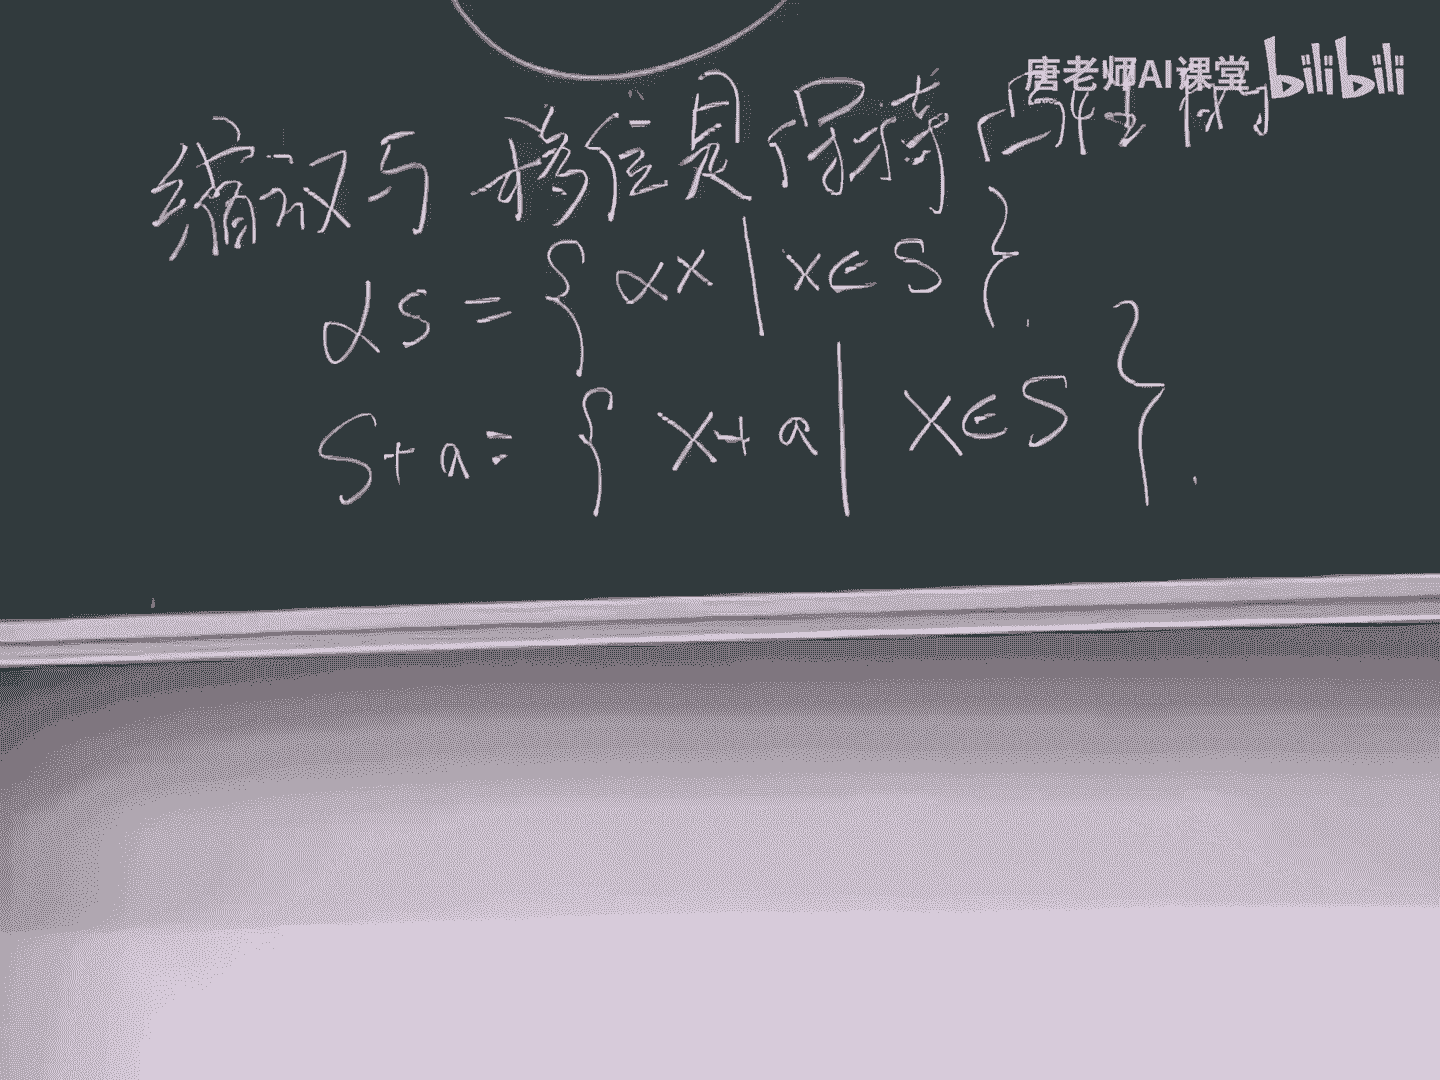 唐老师AI课堂 bilibili
缩放与移位是保持凸性的
αS = { αx | x∈S }.
S+a = { x+a | x∈S }.